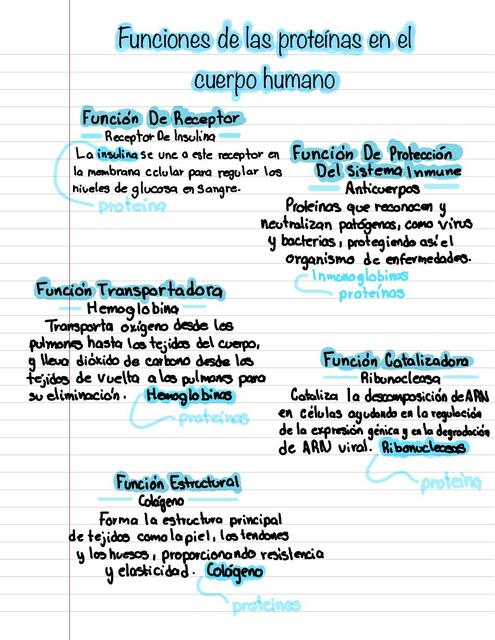 Funciones de las proteínas en el
cuerpo humano
Función De Receptor
Receptor De Insulina
La insulina se une a este receptor en
la membrana celular para regular los
niveles de glucosa en sangre.
proteina
Función De Protección
Del Sistema Inmune
Anticuerpos
Proteinas que reconocen y
neutralizan patógenos, como virus
y bacterias, protegiendo así el
organismo de enfermedades.
Inmunoglobinas
proteínas
Función Transportadora
Hemoglobina
Transporta oxígeno desde los
pulmones hasta los tejidos del cuerpo,
y lleva dióxido de carbono desde los
tejidos de vuelta a los pulmones para
su eliminación. Hemoglobinas
proteinas
Función Catalizadora
Ribonucleasa
Cataliza la descomposición de ARN
en células ayudando en la regulación
de la expresión génica y en la degradación
de ARN viral. Ribonucleasas
proteina
Función Estructural
Colágeno
Forma la estructura principal
de tejidos como la piel, los tendones
y los huesos, proporcionando resistencia
y elasticidad. Colágeno
proteinas